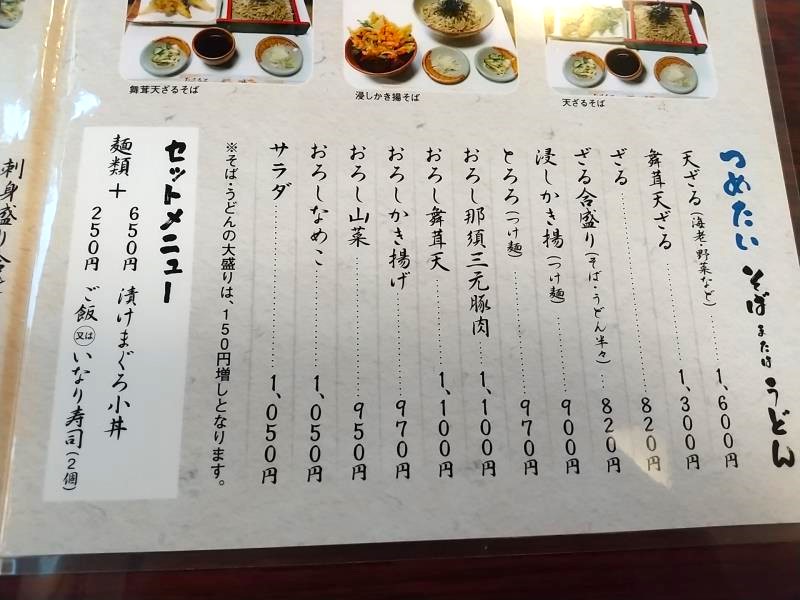 舞茸天ざるそば
浸しかき揚そば
天ざるそば
つめたい そばまたはうどん
天ざる(海老・野菜など)…1,600円
舞茸天ざる…1,300円
ざる…820円
ざる合盛り(そば・うどん半々)…820円
浸しかき揚(つけ麺)…900円
とろろ(つけ麺)…970円
おろし那須三元豚肉…1,100円
おろし舞茸天…1,100円
おろしかき揚げ…970円
おろし山菜…950円
おろしなめこ…1,050円
サラダ…1,050円
※そば・うどんの大盛りは、150円増しとなります。
セットメニュー
麺類+
650円 漬けまぐろ小丼
250円 ご飯又はいなり寿司(2個)
刺身盛り合